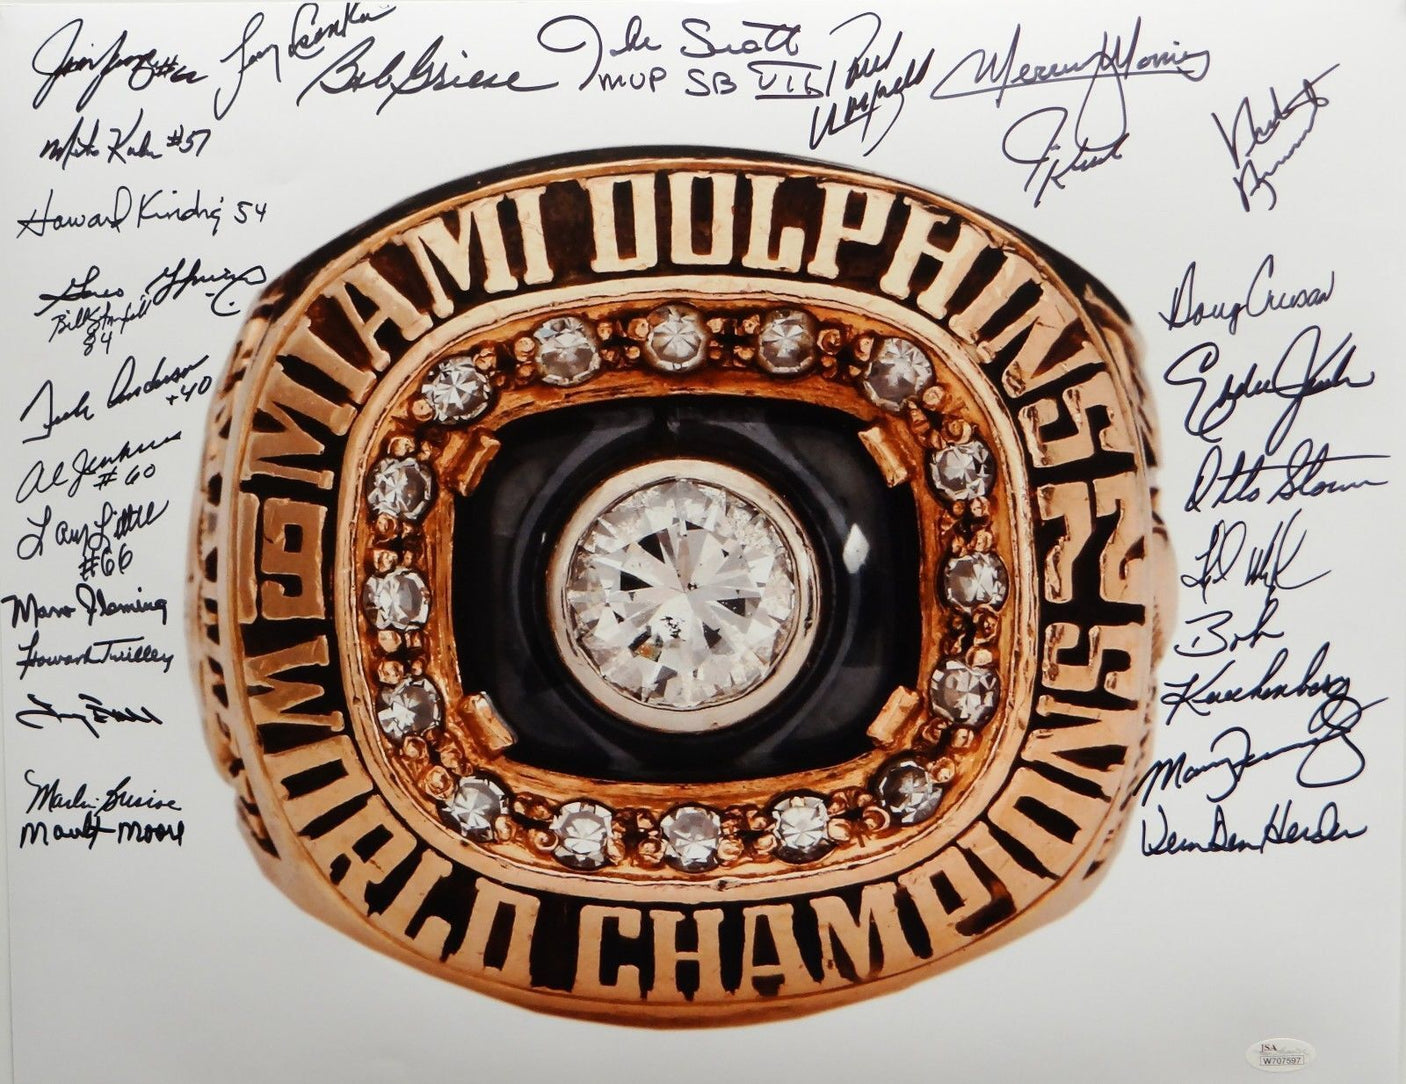 Jim Langer #62
Larry Csonka
Bob Griese
Jake Scott
MVP SB VII
Paul
Warfield
Mercury Morris
Jim
Kiick
Hubert
Mike Kolen #57
Howard Kindig 54
Bill Stanfill
84
Dick Anderson
#40
Al Jenkins
#60
Larry Little
#66
Marv Fleming
Howard Twilley
Marlin Briscoe
Maulty Moore
Doug Crusan
Eddie Jenkins
Otto Stowe
Bob
Kuechenberg
Manny Fernandez
Vern Den Herder
MIAMI DOLPHINS
19 72
WORLD CHAMPIONS
JSA
W707597